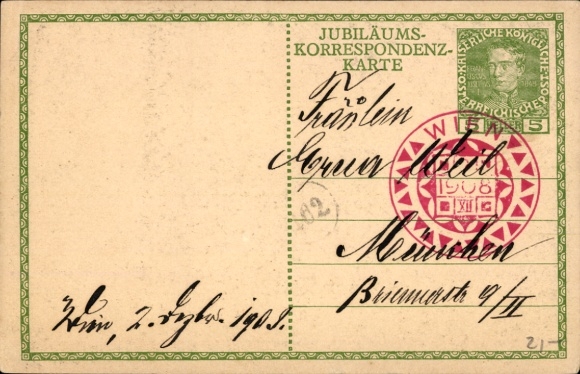 JUBILÄUMS-
KORRESPONDENZ-
KARTE
KAISERLICHE KÖNIGLICHE
ÖSTERREICHISCHE POST
5 5
Fräulein
Erna Weil
WIEN
1908
XII
München
Briennerstr 9/III
Wien, 2. Dezbr. 1908.
21-